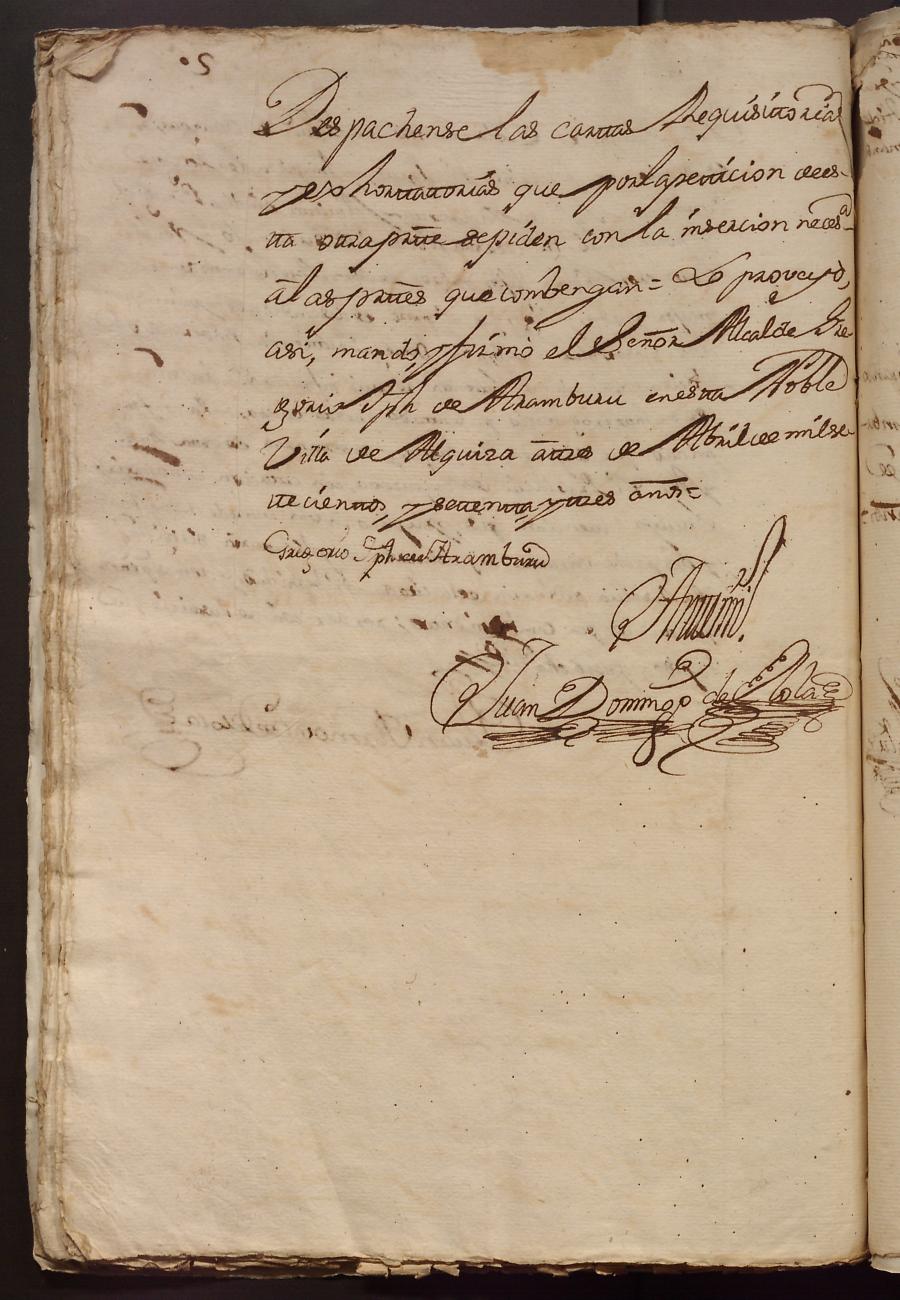 Despachense las cartas Requisitorias
y exhortatorias que por la peticion de es-
ta otra parte se piden con la insercion necesa
a las partes que combengan = Lo proveyó,
asi, mandó, y firmó el Señor Alcalde Gre
gorio Jph de Aramburu en esta Noble
Villa de Alquiza a tres de Abril de mil se
tecientos, y setenta, y tres años =
Gregorio Jph de Aramburu
Antemi
Juan Domingo de